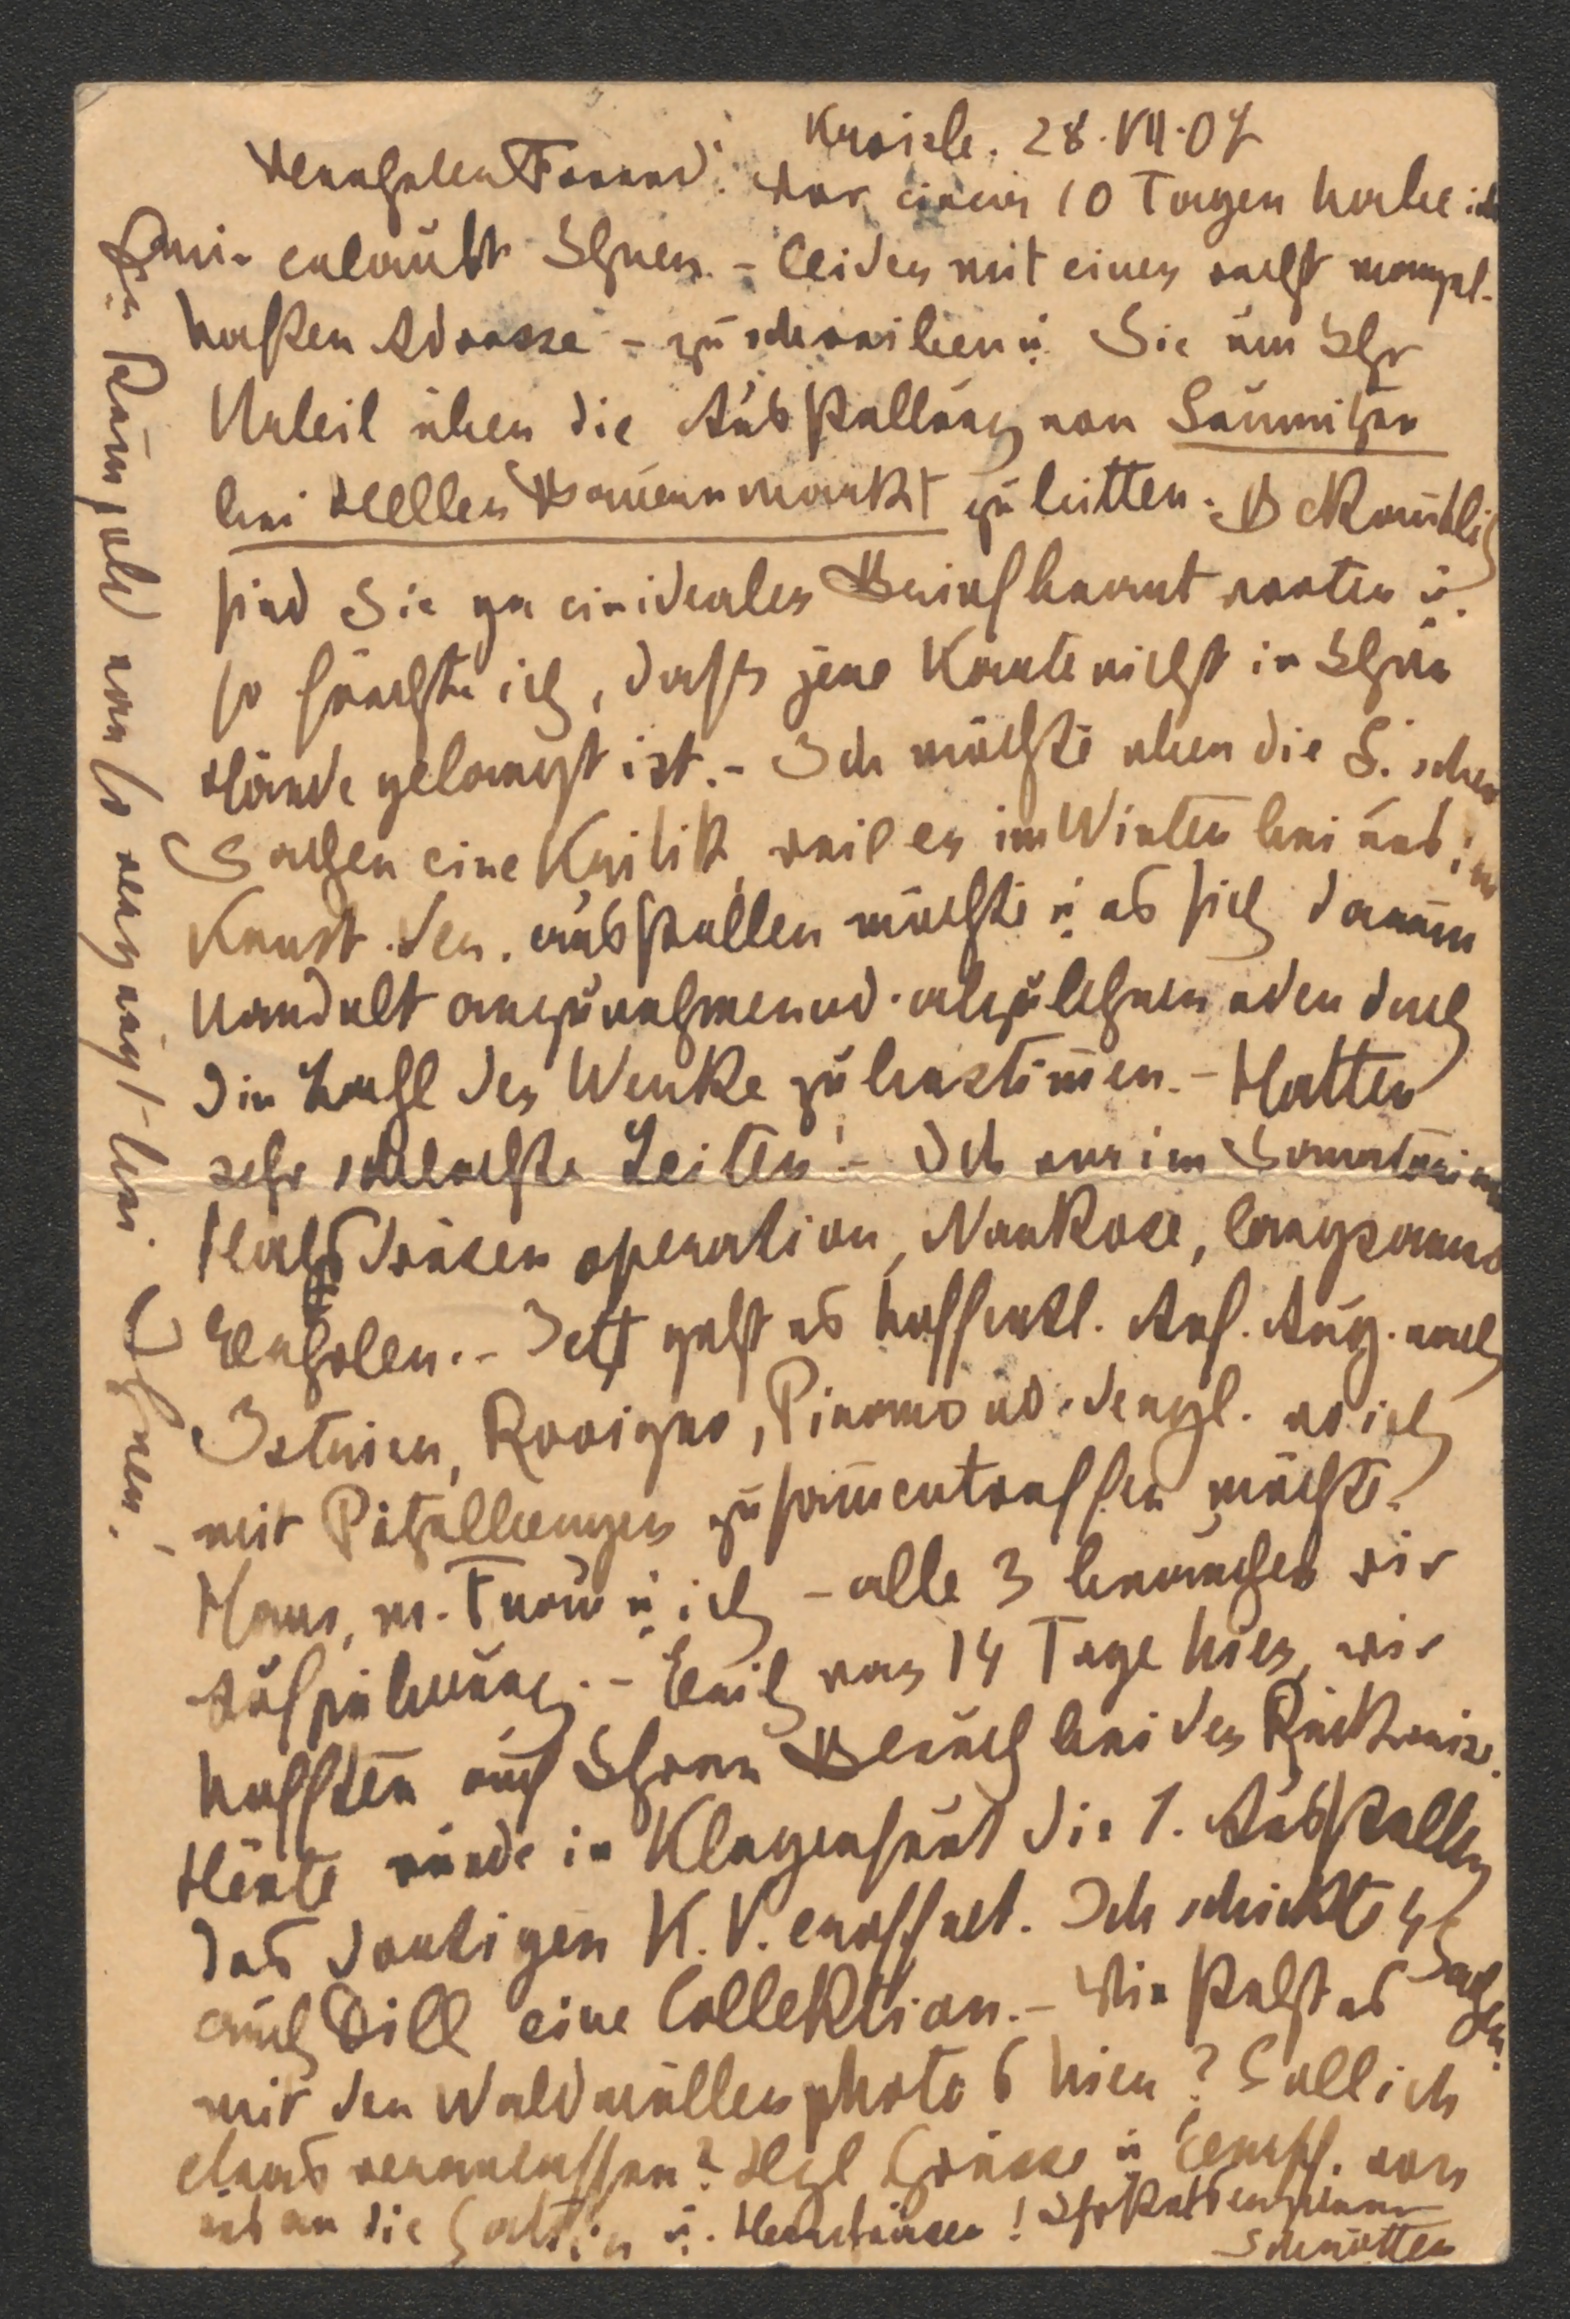 Kroisb. 28.VII.07
Verehrter Freund! Vor einer 10 Tagen habe ich
mir erlaubt Ihnen – leider mit einer recht mangel-
haften Adresse – zu schreiben u. Sie um Ihr
Urteil über die Ausstellung von
bei Heller Bauernmarkt zu bitten. Bekanntlich
sind Sie ja ein idealer Briefbeantworter u.
so fürchte ich, dass jene Karte nicht in Ihre
Hände gelangt ist. – Ich möchte über die S. schen
Sachen eine Kritik, weil er im Winter bei uns im
Kunst.Ver. ausstellen möchte u. es sich darum
handelt anzunehmen od. abzulehnen oder doch
die Zahl der Werke zu bestimmen. – Hatten
sehr schlechte Zeiten! – Ich war im Sanatorium
Halsdrüsen operation, Narkose, langsames
Erholen. – Jetzt geht es hoffentl. Anf. Aug. nach
Istrien, Rovigno, Pirano od. dergl. wo ich
mit zusammentreffen möchte.
Hans, m. Frau u. ich – alle 3 brauchen wir
Auffrischung. – Erich war 14 Tage hier, wir
hofften auf Ihren Besuch bei der Rückreise.
Heute wurde in Klagenfurt die 1. Ausstellg
des dortigen K.V. eröffnet. Ich schickte 4 Sachen.
auch Dill eine Collektion. – Wie steht es
mit den Waldmüllerphotos hier? Soll ich
etwas veranlassen? Hzl Grüsse u. Empf. von
uns an die Gattin u. ! Ihr stets ergebener
Schrötter
Ein Raimfeld war so vergnügt bei Ihnen. –